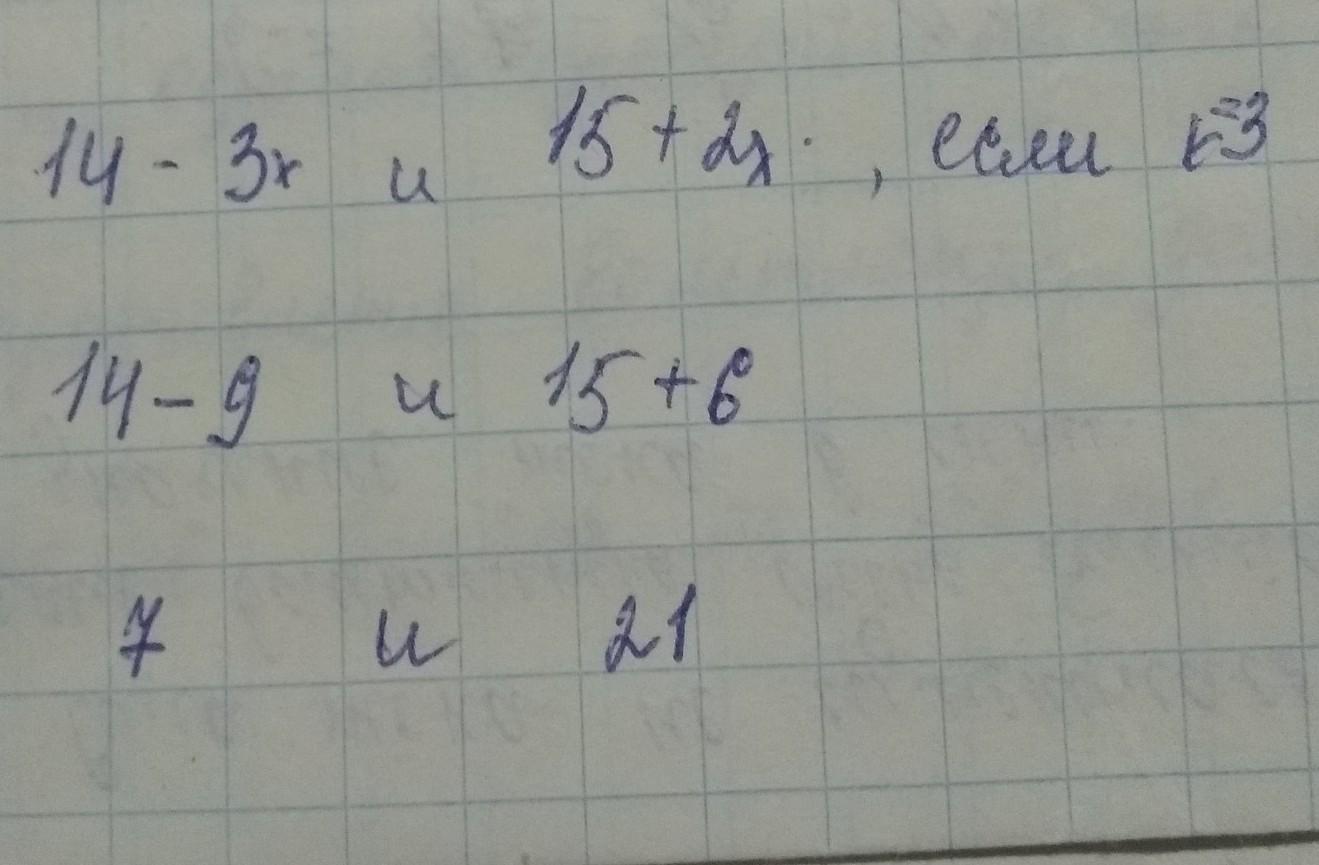 14 - 3x и 15 + 2x , если x=3
14 - 9 и 15 + 6
7 и 21